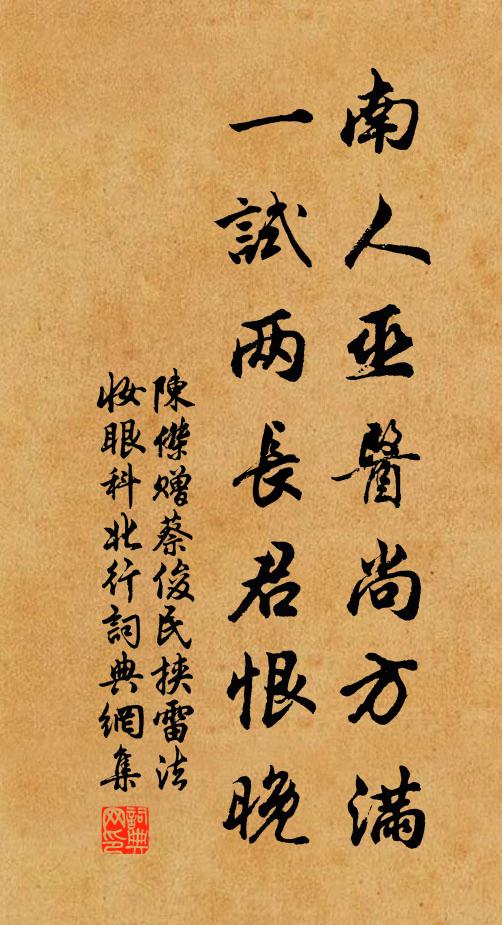 南人巫醫尚方滿
一試两長君恨晚
陳傑贈蔡俊民挟雷法
妝眼科北行詞典網集
詞典网印